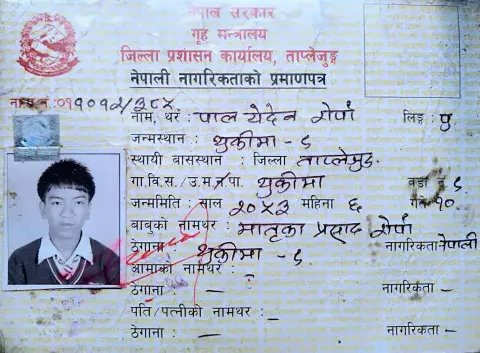 नेपाल सरकार
गृह मन्त्रालय
जिल्ला प्रशासन कार्यालय, ताप्लेजुङ्ग
नेपाली नागरिकताको प्रमाणपत्र
नाम, थर : पाल येदेन शेर्पा लिङ्ग : पु
जन्मस्थान : थुकीमा - ६
स्थायी बासस्थान : जिल्ला ताप्लेजुङ
गा.वि.स./उ.म.न.पा. थुकीमा वडा ६
जन्ममिति : साल २०५३ महिना ६ गते १०
बाबुको नामथर : मातृका प्रसाद शेर्पा
ठेगाना : थुकीमा - ६ नागरिकता नेपाली
आमाको नामथर : -
ठेगाना : - नागरिकता -
पति/पत्नीको नामथर : -
ठेगाना : - नागरिकता -